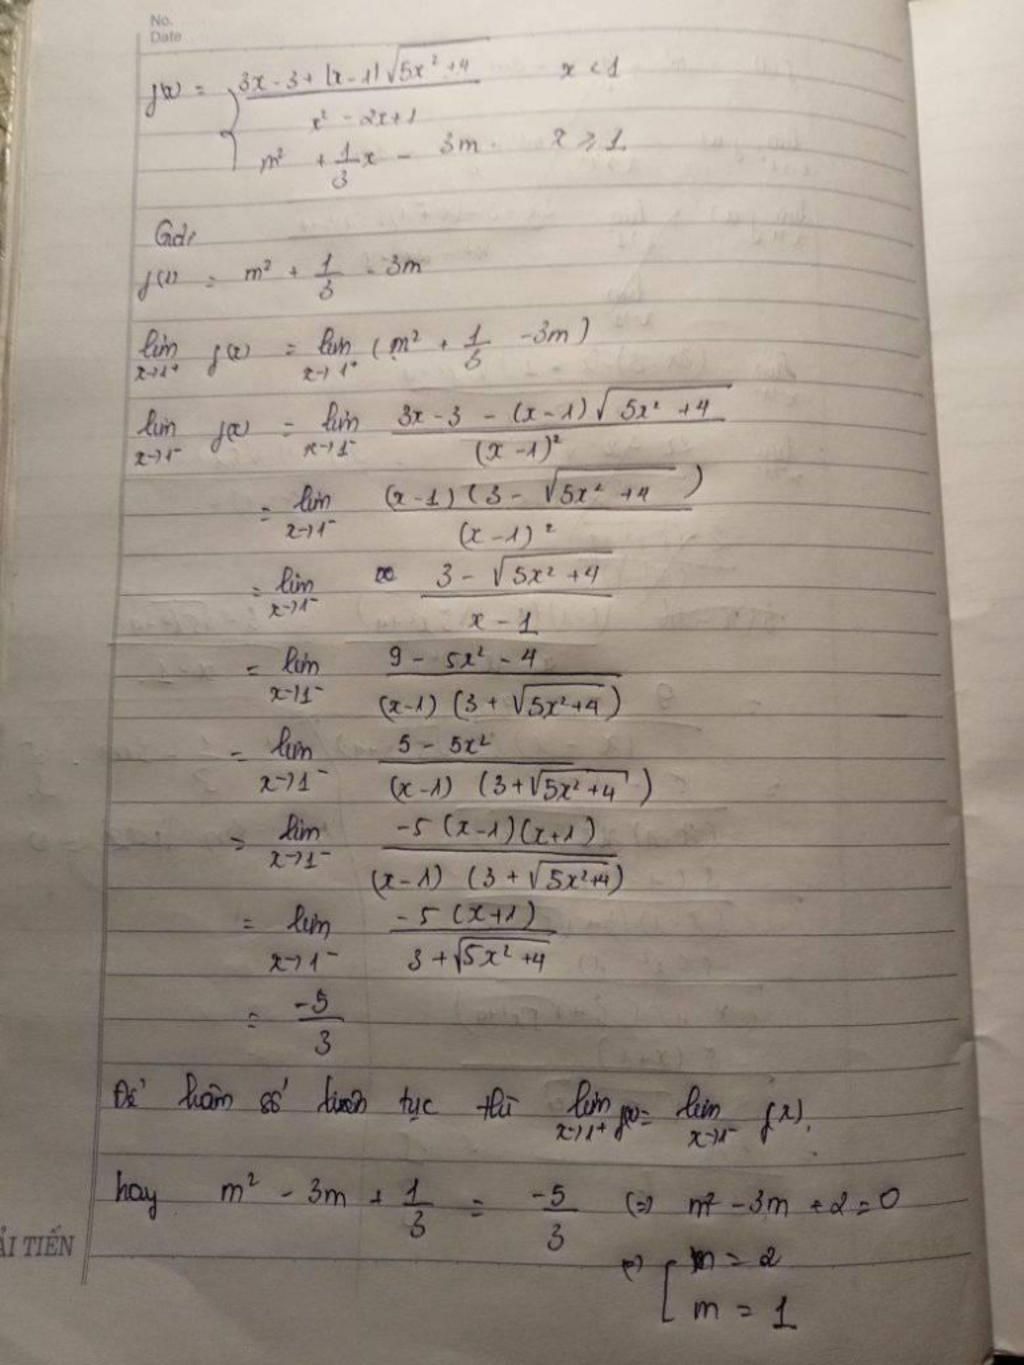 No.
Date
f(x) = { (3x - 3 + (x - 1)√(5x² + 4)) / (x² - 2x + 1)   x < 1
m² + 1/3 x - 3m   x ≥ 1
Giải
f(1) = m² + 1/3 - 3m
lim x→1⁺ f(x) = lim x→1⁺ (m² + 1/3 - 3m)
lim x→1⁻ f(x) = lim x→1⁻ (3x - 3 - (x - 1)√(5x² + 4)) / (x - 1)²
= lim x→1⁻ (x - 1)(3 - √(5x² + 4)) / (x - 1)²
= lim x→1⁻ (3 - √(5x² + 4)) / (x - 1)
= lim x→1⁻ (9 - 5x² - 4) / ((x - 1)(3 + √(5x² + 4)))
= lim x→1⁻ (5 - 5x²) / ((x - 1)(3 + √(5x² + 4)))
= lim x→1⁻ (-5(x - 1)(x + 1)) / ((x - 1)(3 + √(5x² + 4)))
= lim x→1⁻ (-5(x + 1)) / (3 + √(5x² + 4))
= -5/3
Để hàm số liên tục thì lim x→1⁺ f(x) = lim x→1⁻ f(x).
hay m² - 3m + 1/3 = -5/3 (=) m² - 3m + 2 = 0
(=) [ m = 2
m = 1
ẢI TIẾN